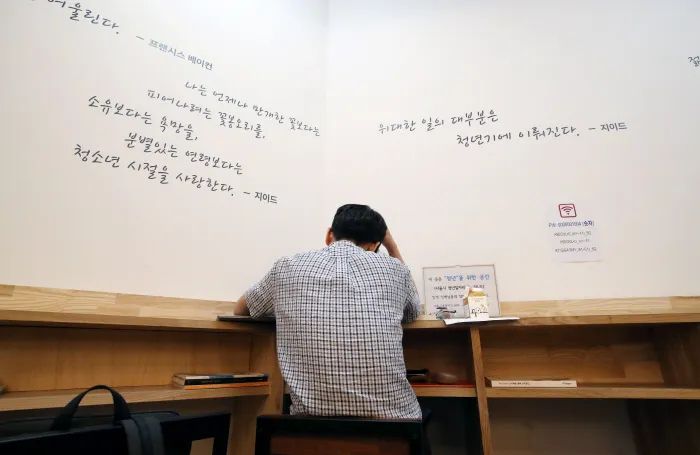 어울린다. - 프랜시스 베이컨
나는 언제나 만개한 꽃보다는
피어나려는 꽃봉오리를,
소유보다는 욕망을,
분별있는 연령보다는
청소년 시절을 사랑한다. - 지이드
위대한 일의 대부분은
청년기에 이뤄진다. - 지이드
"청년"을 위한 공간